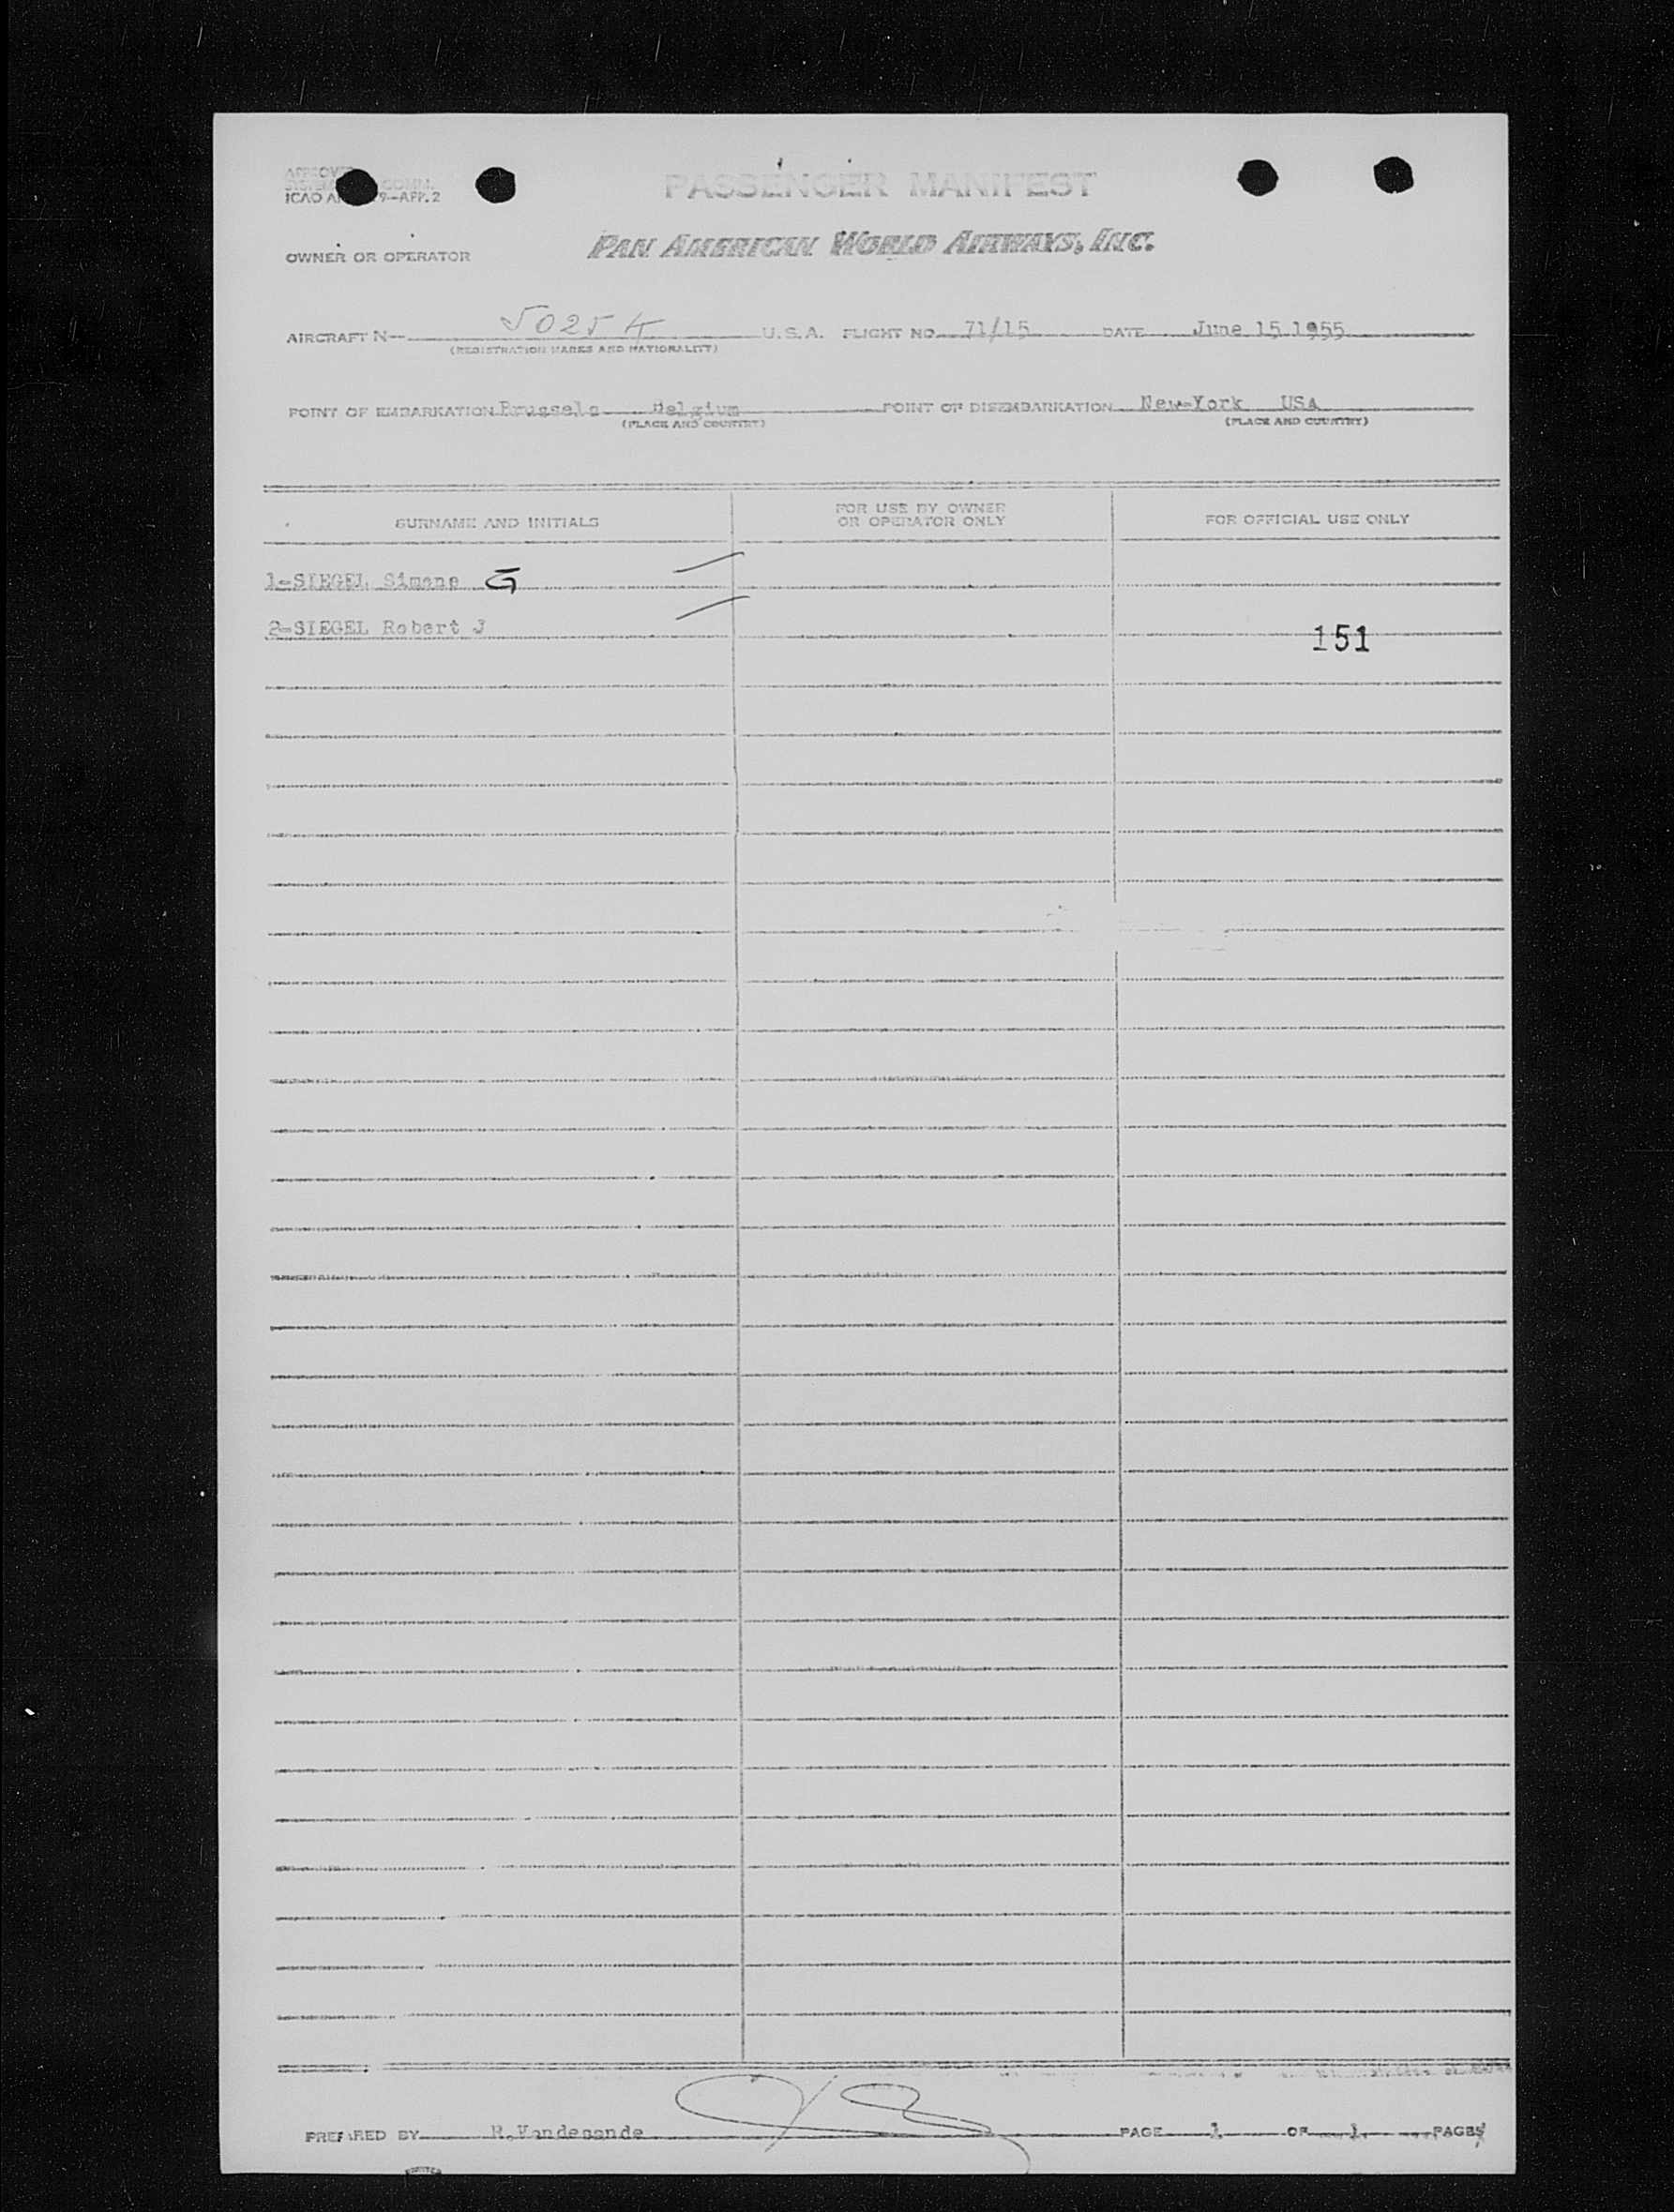 PASSENGER MANIFEST
ICAO 9—APP. 2
PAN AMERICAN WORLD AIRWAYS, INC.
OWNER OR OPERATOR
AIRCRAFT N— 5025 U.S.A. FLIGHT NO. 71/15 DATE June 15 1955
(REGISTRATION MARKS AND NATIONALITY)
POINT OF EMBARKATION Brussels Belgium POINT OF DISEMBARKATION New-York USA
(PLACE AND COUNTRY) (PLACE AND COUNTRY)
SURNAME AND INITIALS FOR USE BY OWNER OR OPERATOR ONLY FOR OFFICIAL USE ONLY
1-SIEGEL Simone G
2-SIEGEL Robert J
151
PREPARED BY R.Vandesande PAGE 1 OF 1 PAGES